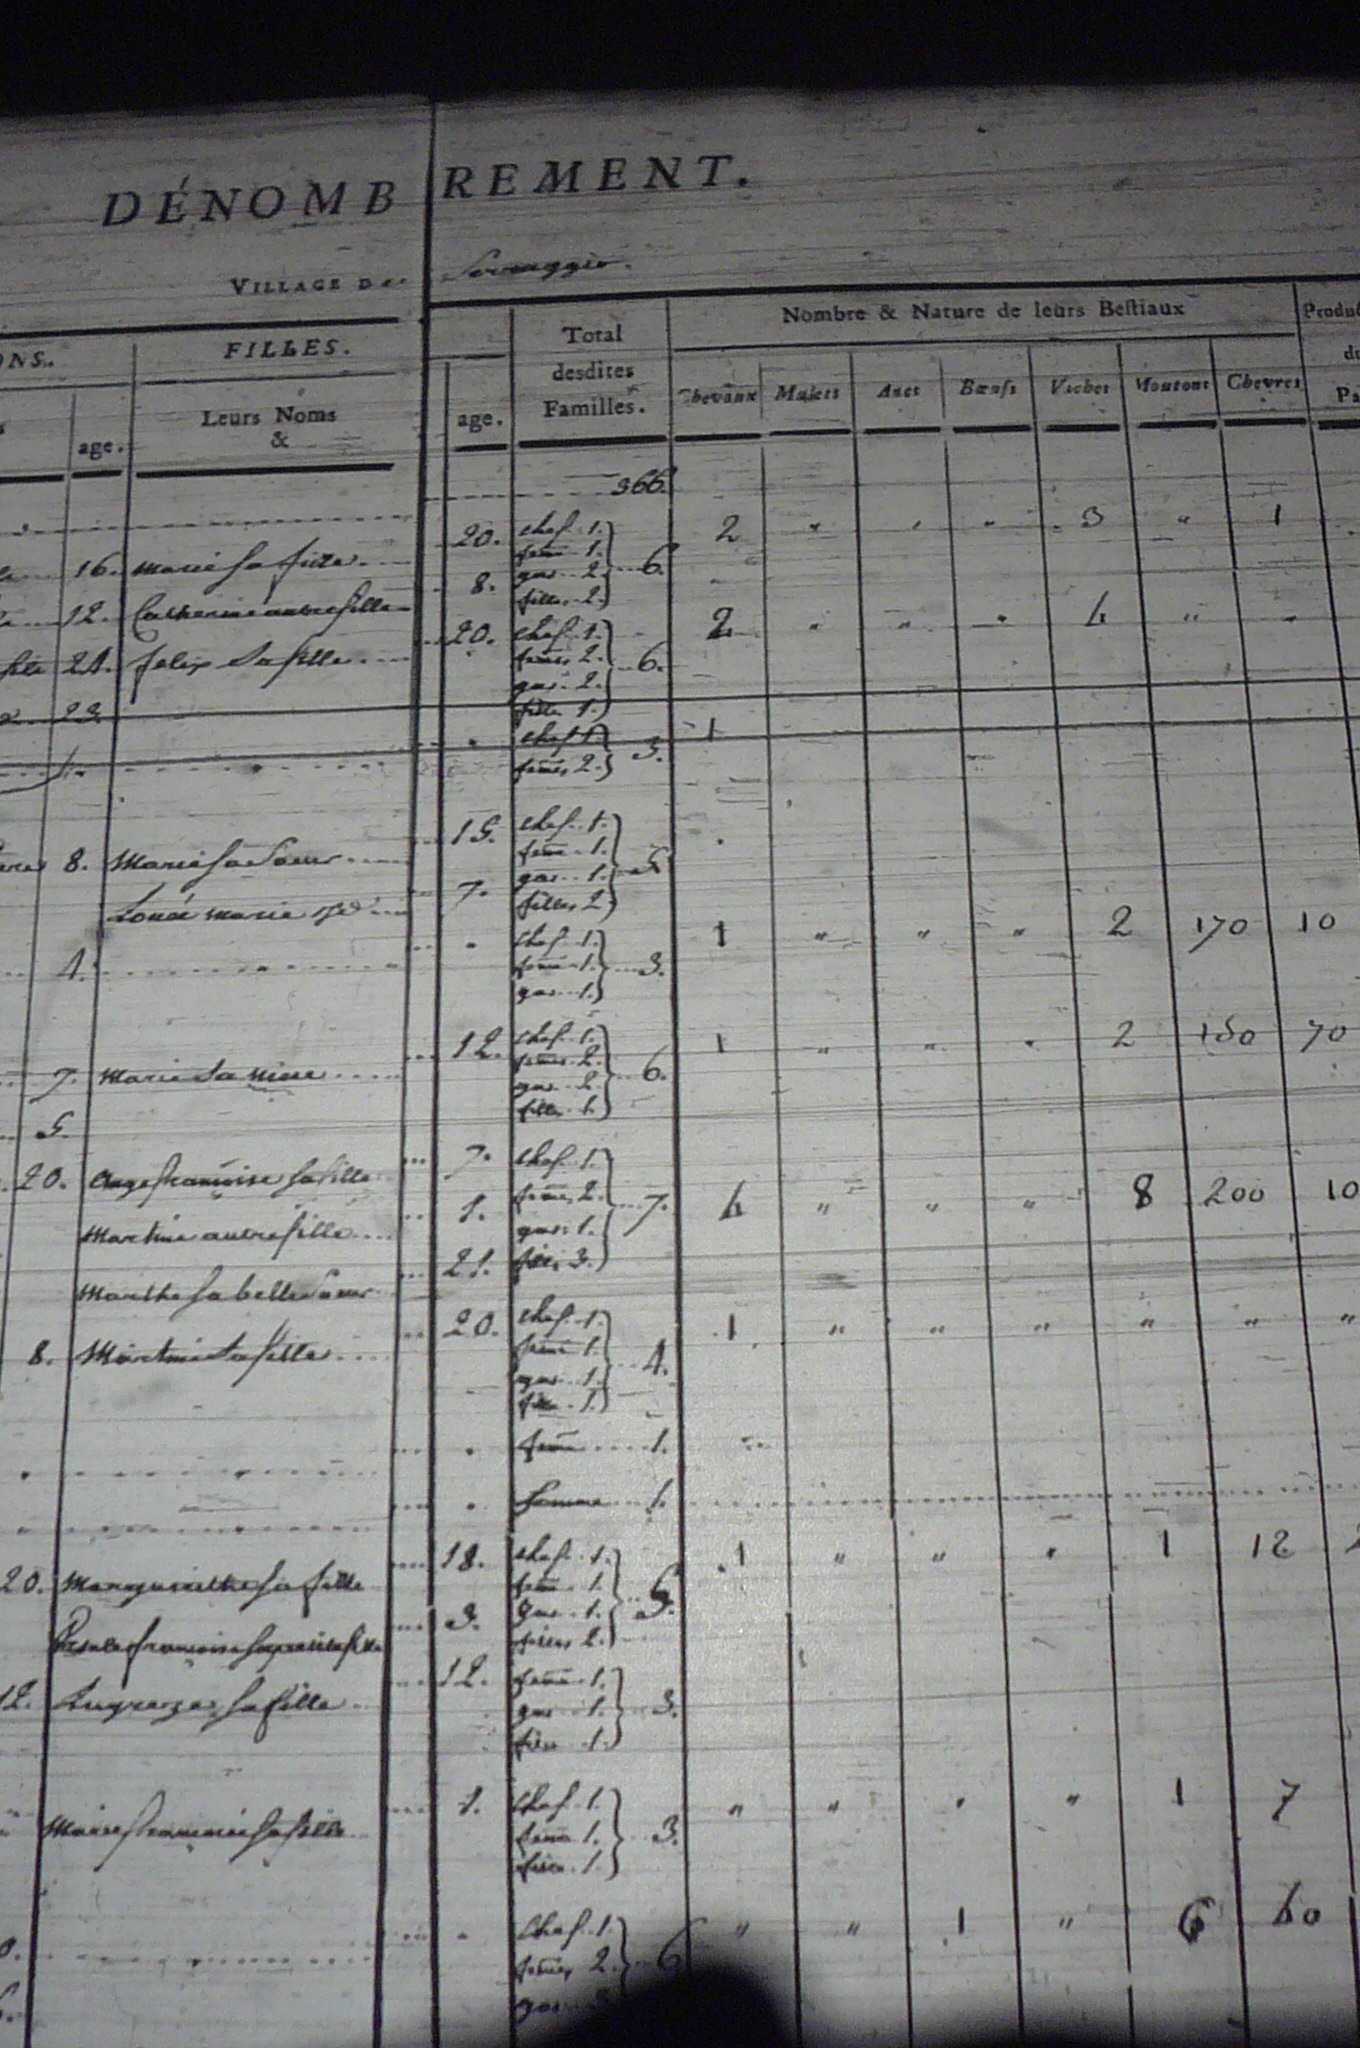 DÉNOMBREMENT.
VILLAGE De Serraggio.
ONS.
FILLES.
age.
Leurs Noms
&
age.
Total
desdites
Familles.
Nombre & Nature de leurs Bestiaux
Chevaux Mulets Anes Bœufs Vaches Moutons Chevres
Produc
du
Pa
366.
16. Marie sa fille 20. chef 1. 2 " " " 3 " 1
feme 1.
12. Catherine autre fille 8. gar 2. 6.
filles 2.
21. felix sa fille 20. chef 1. 2 " " " 4 " "
femes 2. 6.
gar 2.
22. fille 1.
chef 1. 3. 1
femes 2.
8. Marie sa Soeur 15. chef 1.
feme 1. 5
7. gar 1.
filles 2.
4. chef 1. 1 " " " 2 170 10
feme 1. 3.
gar 1.
7. Marie sa niece 12. chef 1. 1 " " " 2 150 70
femes 2. 6.
5. gar 2.
fille 1.
20. Ange françoise sa fille 7. chef 1. 4 " " " 8 200 10
femes 2. 7.
Martine autre fille 1. gar 1.
Marthe sa belle Soeur 21. filles 3.
8. Martine sa fille 20. chef 1. 1 " " " " " "
feme 1. 4.
gar 1.
fille 1.
feme 1.
femme 1.
20. Marguerithe sa fille 18. chef 1. 1 " " " 1 12
feme 1. 5.
3. gar 1.
filles 2.
12. sa fille 12. feme 1.
gar 1. 3.
fille 1.
Marie françoise sa fille 1. chef 1. " " " " 1 7
feme 1. 3.
fille 1.
chef 1. " " 1 " 6 60
femes 2. 6
gar